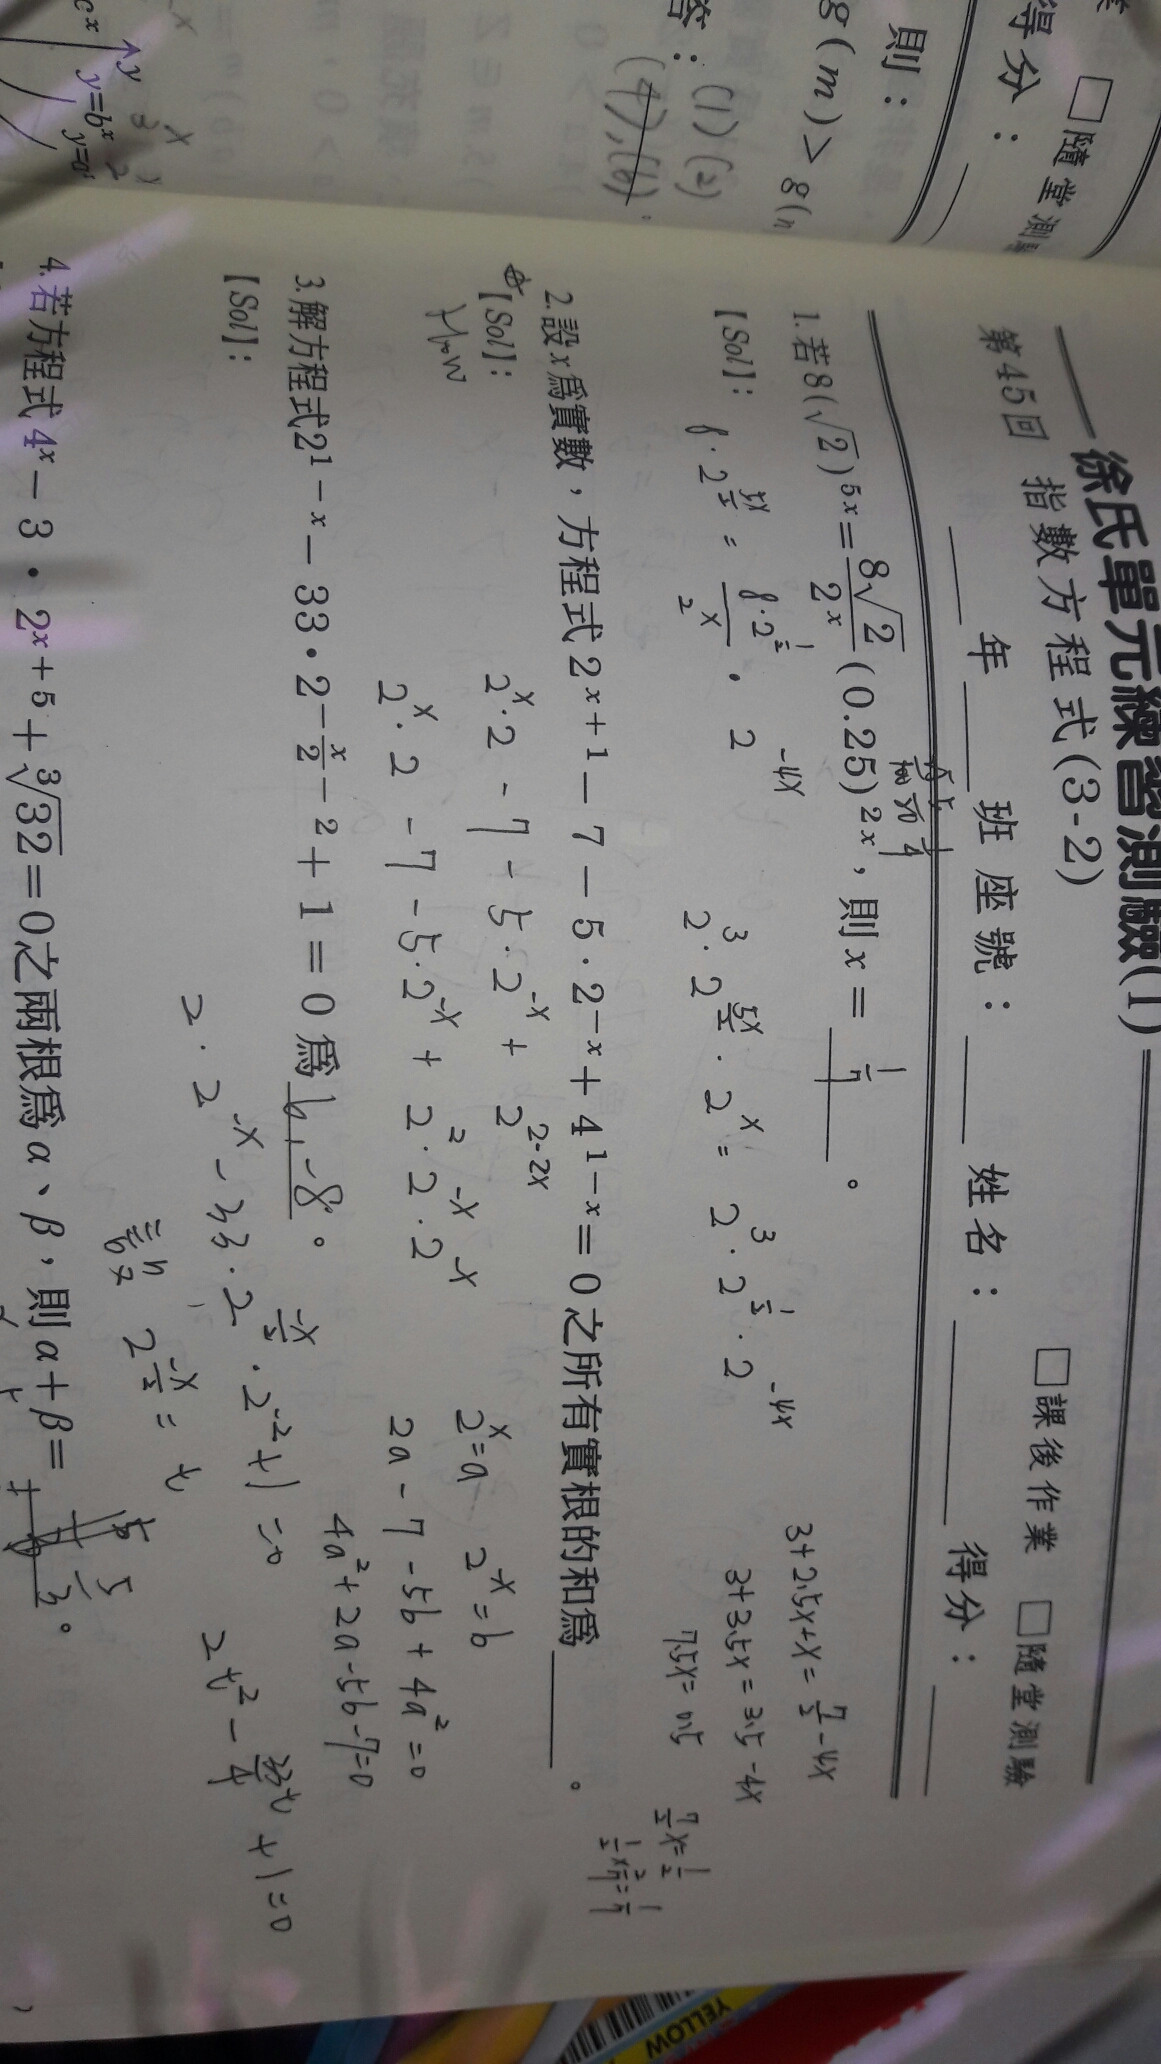 徐氏單元練習測驗(1)
第45回 指數方程式(3-2)
□課後作業 □隨堂測驗
年 班 座號： 姓名： 得分：
1.若8(√2)^{5x}=\frac{8√2}{2^x}(0.25)^{2x}，則x=\frac{1}{7}。
【Sol】：
8·2^{\frac{5x}{2}} = \frac{8·2^{\frac{1}{2}}}{2^x} · 2^{-4x}
2^3·2^{\frac{5x}{2}}·2^x = 2^3·2^{\frac{1}{2}}·2^{-4x}
3+2.5x+x=\frac{7}{2}-4x
3+3.5x=3.5-4x
7.5x=0.5
\frac{7}{2}x=\frac{1}{2}
\frac{1}{2}×\frac{2}{7}=\frac{1}{7}
2.設x爲實數，方程式2^{x+1}-7-5·2^{-x}+4^{1-x}=0之所有實根的和爲____。
【Sol】：
How
2^x·2-7-5·2^{-x}+2^{2-2x}
2^x·2-7-5·2^{-x}+2^2·2^{-x}·2^{-x}
2^x=a 2^{-x}=b
2a-7-5b+4a^2=0
4a^2+2a-5b-7=0
3.解方程式2^{1-x}-33·2^{-\frac{x}{2}-2}+1=0爲6,-8。
【Sol】：
2·2^{-x}-33·2^{\frac{-x}{2}}·2^{-2}+1=0
2^{\frac{-x}{2}}=t
2t^2-\frac{33t}{4}+1=0
4.若方程式4^x-3·2^{x+5}+∛32=0之兩根爲α、β，則α+β=
。
□隨堂測
得分：
則：
g(m)>g(n
答：(1)(2)
(4),(6)
y
y=b^x
c^x